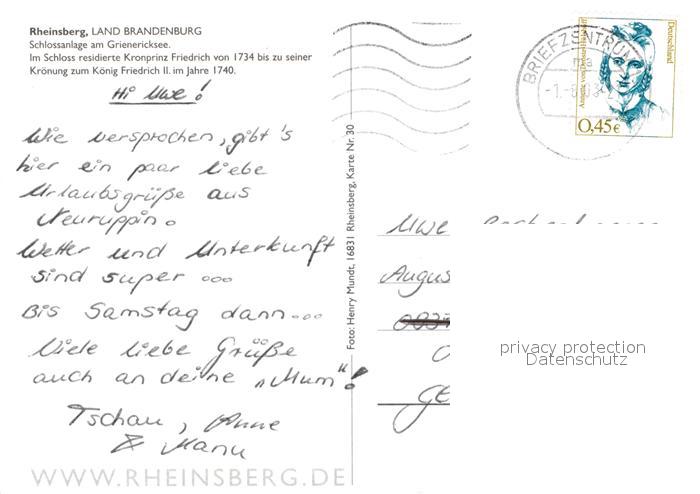 Rheinsberg, LAND BRANDENBURG
Schlossanlage am Grienericksee.
Im Schloss residierte Kronprinz Friedrich von 1734 bis zu seiner
Krönung zum König Friedrich II. im Jahre 1740.
Hi Uwe!
Wie versprochen, gibt's
hier ein paar liebe
Urlaubsgrüße aus
Neuruppin.
Wetter und Unterkunft
sind super ...
Bis Samstag dann...
Viele liebe Grüße
auch an deine „Mum"!
Tschau, Anne
& Manu
WWW.RHEINSBERG.DE
Foto: Henry Mundt, 16831 Rheinsberg, Karte Nr. 30
BRIEFZENTRUM
Deutschland
0,45€
Uwe
August
privacy protection
Datenschutz